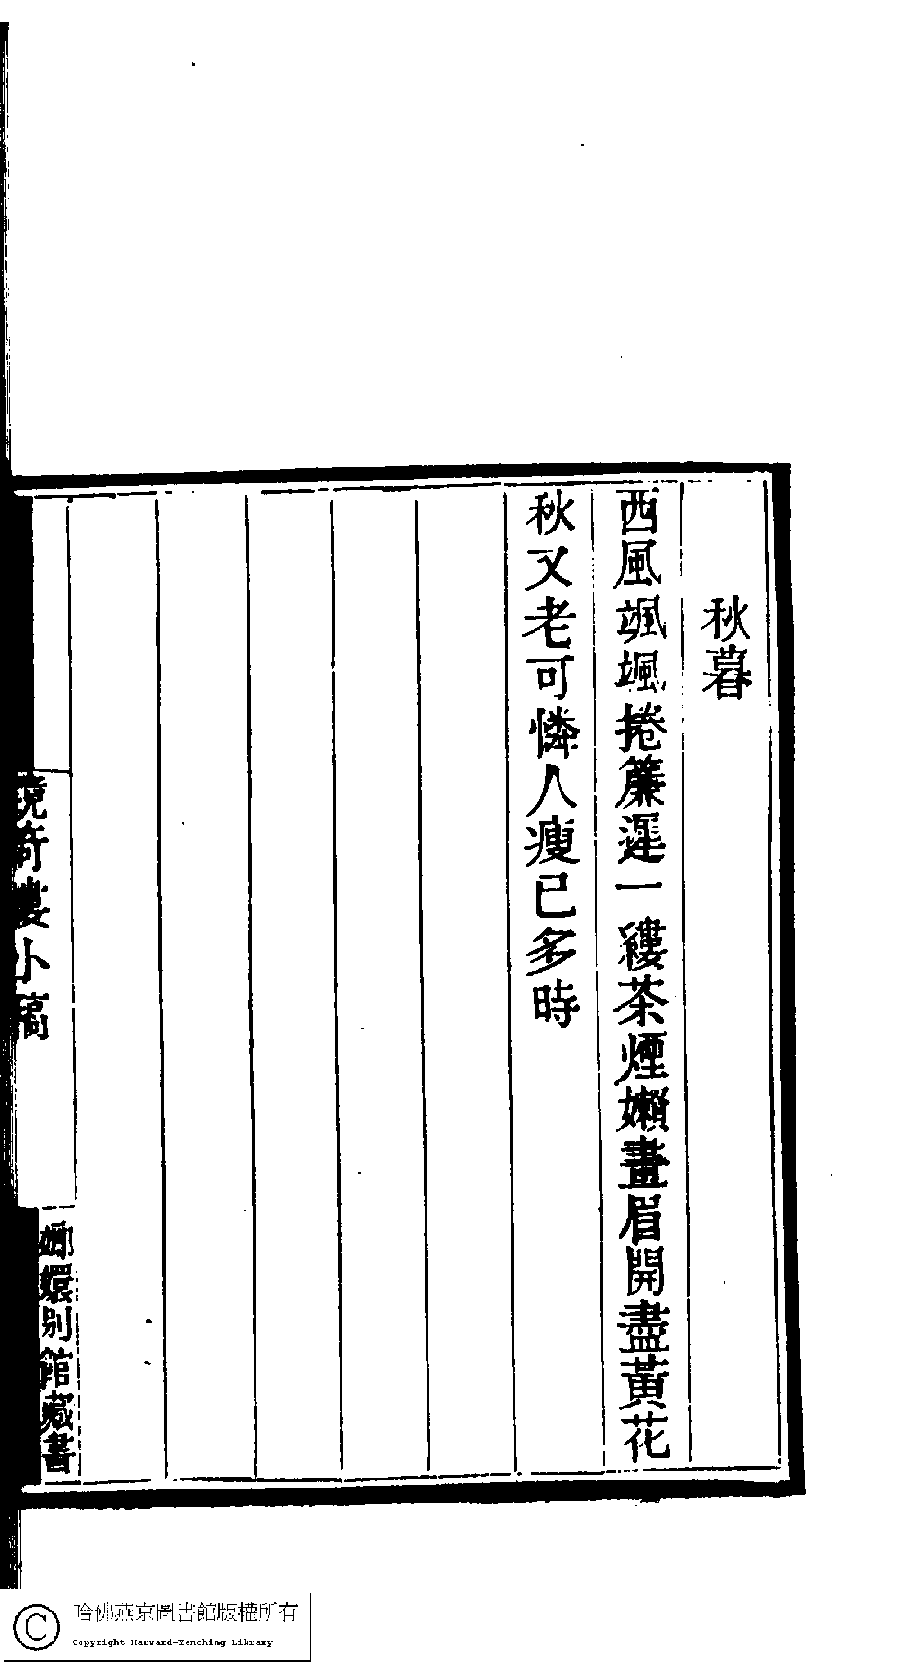 秋暮
西風颯颯捲簾遲一縷茶煙嬾畫眉開盡黃花
秋又老可憐人瘦已多時
鏡倚樓小稿
嫏嬛别館藏書
哈佛燕京圖書館版權所有
Copyright Harvard-Yenching Library